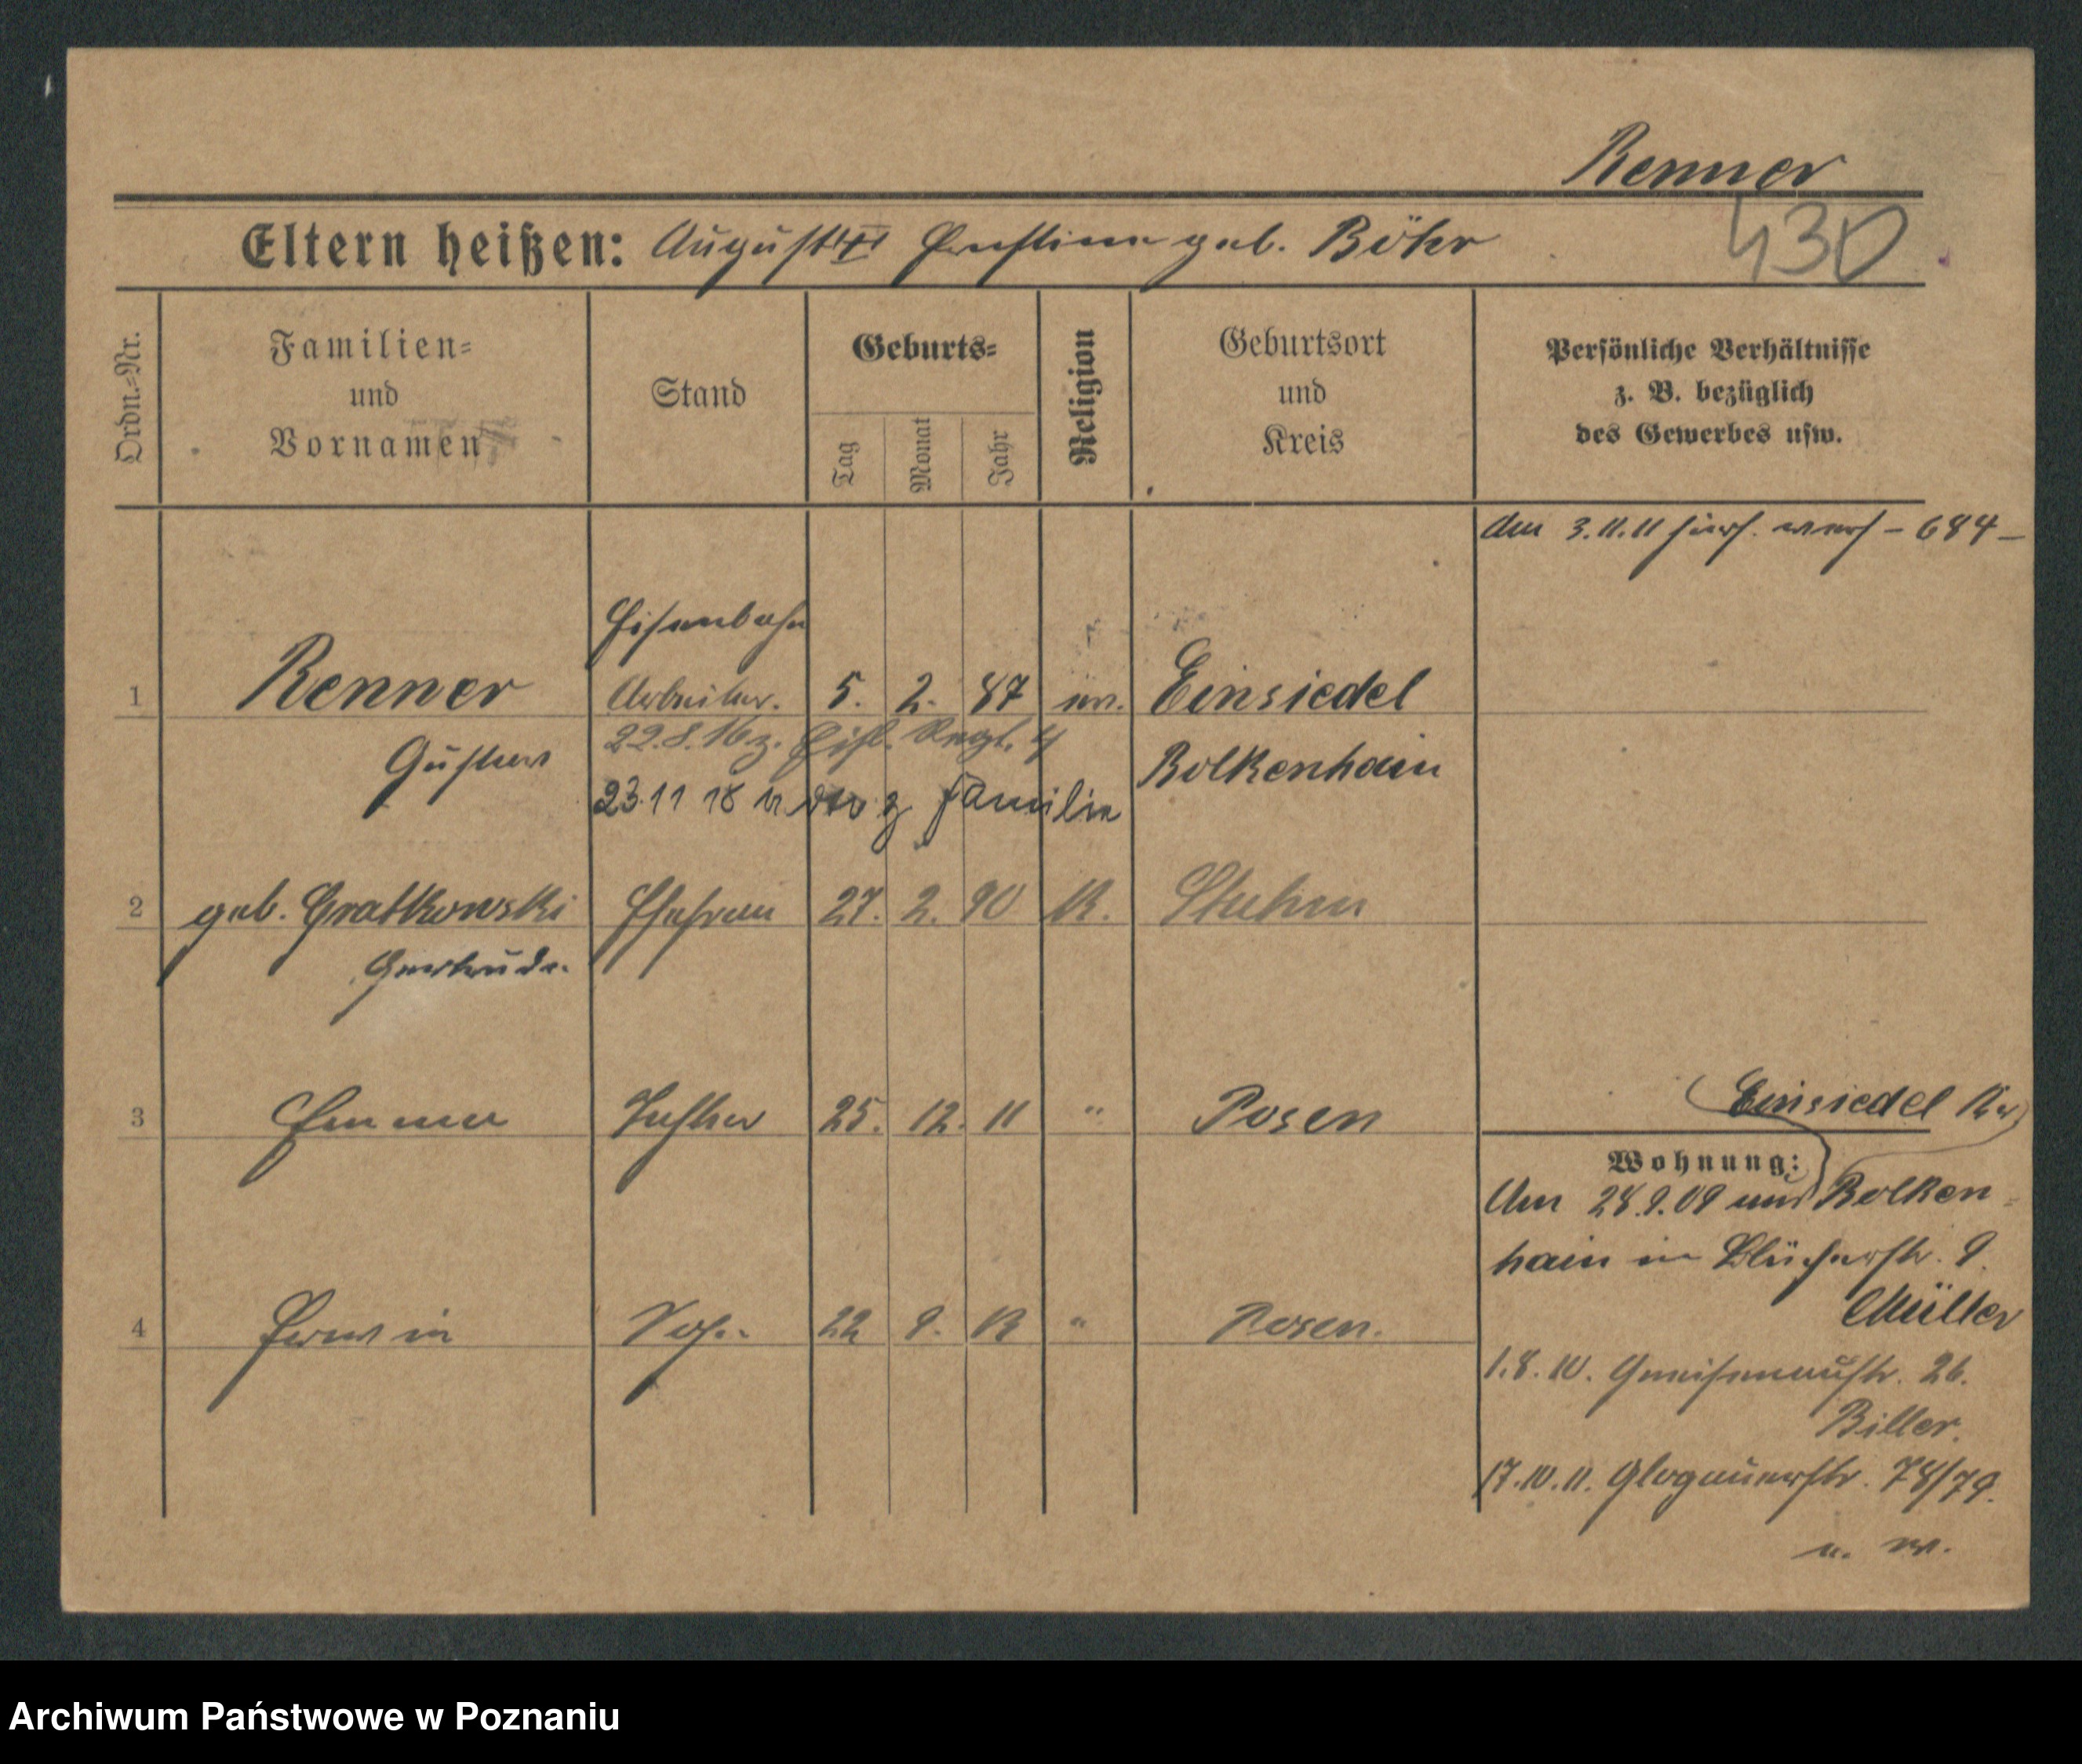 Renner
430
Eltern heißen: August u. Ernstine geb. Böhr
Ordn.-Nr.
Familien-
und
Vornamen
Stand
Geburts-
Tag
Monat
Jahr
Religion
Geburtsort
und
Kreis
Persönliche Verhältnisse
z. B. bezüglich
des Gewerbes usw.
Am 3.11.11 - 684 -
Eisenbahn
1 Renner Arbeiter. 5. 2. 87 ev. Einsiedel
22.8.16 z. Eisb. Regt. 4
Gustav Bolkenhain
23.11 18 v. z Familie
2 geb. Gratkowski Ehefrau 27. 2. 90 k. Stuhm
Gertrude.
3 Emma Tochter 25. 12. 11 " Posen
(Einsiedel Kr)
Wohnung:
Am 28.9.09 aus Bolken-
hain in Blücherstr. 9.
Müller
4 Erwin Sohn 22 9. 13 " Posen.
1.8.10. Gneisenaustr. 26.
Biller.
17.10.11. Glogauerstr. 78/79.
Archiwum Państwowe w Poznaniu